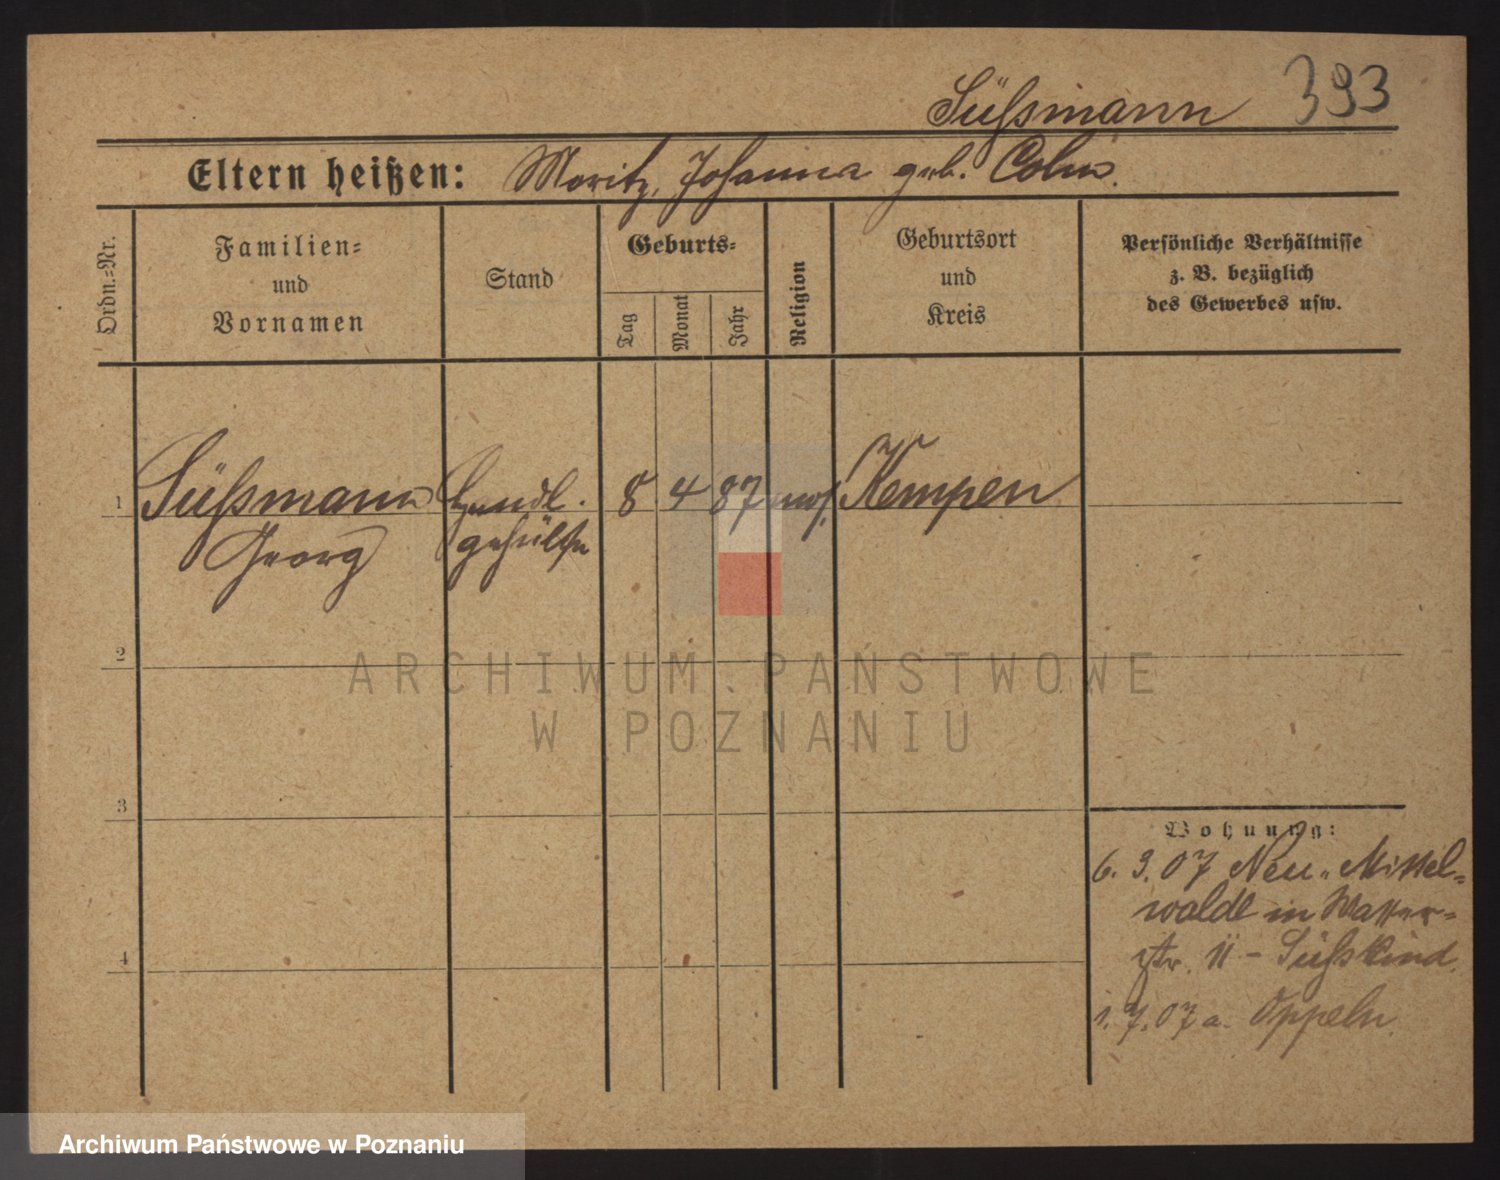 Süßmann 393
Eltern heißen: Moritz, Johanna geb. Cohn.
Ordn.=Nr.
Familien=
und
Vornamen
Stand
Geburts=
Tag
Monat
Jahr
Religion
Geburtsort
und
Kreis
Persönliche Verhältnisse
z. B. bezüglich
des Gewerbes usw.
1 Süßmann Handl. 8 4 87 mos. Kempen
Georg gehülfe
2
3
4
Wohnung:
6. 3. 07 Neu-Mittel=
walde in Wasser=
str. 11 - Süßkind.
1. 7. 07 a. Oppeln
ARCHIWUM PAŃSTWOWE
W POZNANIU
Archiwum Państwowe w Poznaniu